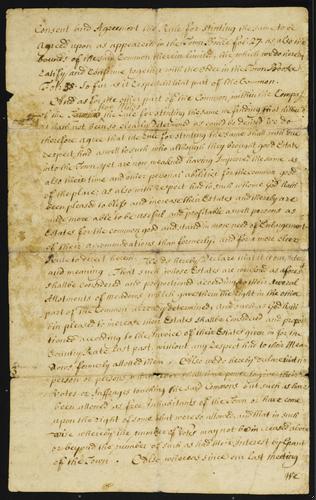 Consent and Agreement the Rule for stinting the same to be
Agreed upon as appeareth in the Town Booke fol: 27. as also the
bounds of the said Common therein limited, the which we do hereby
Ratify and Confirme together with the order in the Town Booke
fol: 33. So far as it respects that part of the Common.
And as for the other part of the Common within the Compass
of the the Rule for stinting the same
hath not been so clearly Determined as could be desired We do
therefore agree that the Rule for stinting the same shall with due
respect had as well to such who although they brought good Estate
into the Town, yet are now weakned having Improved the same as
also their time and other personal abilities for the common good
of the place; as also with respect had to such whome God hath
been pleased to bless and increase their Estates and thereby are
made more able to be usefull and profitable as well persons as
Estates for the common good and stand in more need of Enlargement
of their accommodations than formerly, and for a more clear
Rule to direct herein. We do hereby Declare that it is our
and meaning. That such whose Estates are as afores
shall be Considered and proportioned according to their severall
Allotments of Meadows which gave them the Right in the other
part of the Common already determined, And such as God hath
bin pleased to increase their Estates shall be Considered and propor
tioned according to the Invoice of their Estates given in for the
Country Rate last past, without any respect had to their Mea
dows formerly allowed them. Also we do hereby declare that no
person or persons shall have power to give their
Votes or Suffrages touching the said Commons but such as have
been allowed as free Inhabitants of the Town or have come
upon the right of some that were so allowed, and that in such
wise whereby the number of Votes may not be increased above
or beyond the number of such as had their Interest by Grant
of the Town. Also, whereas since our last meeting
We